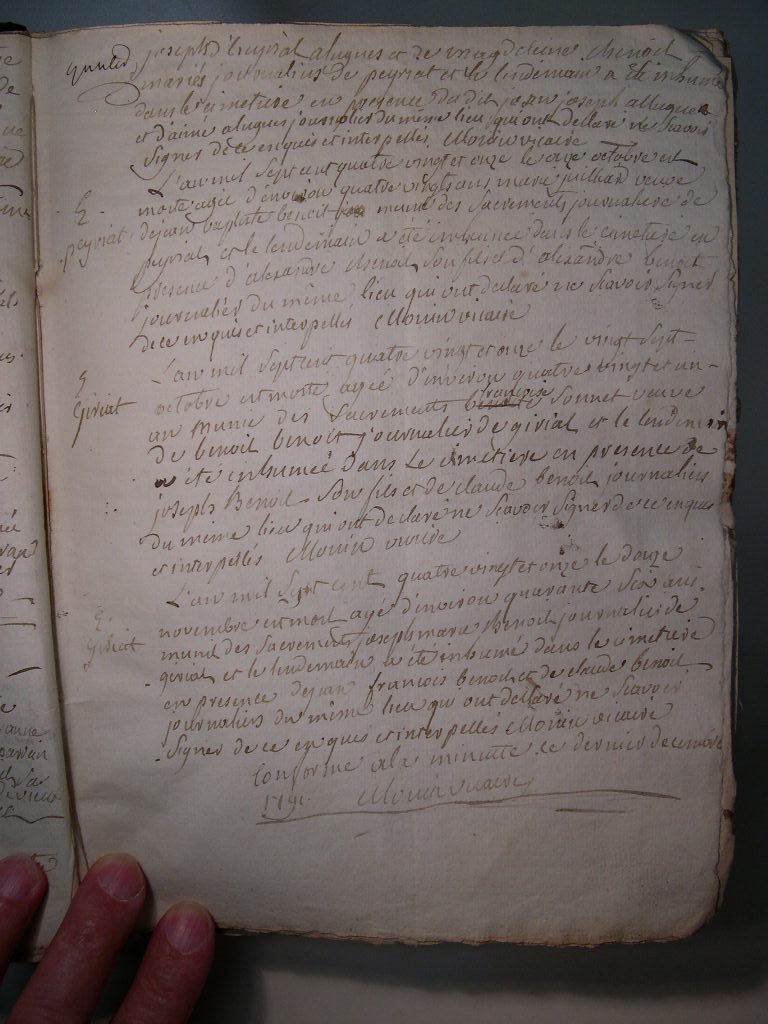 joseph d'heyriat alugues et de magdeleine Benoit
mariés journaliers de peyriat et le lendemain a été inhumé
dans le cimetiere en presence du dit jean joseph allugues
et d'aimé alugues journalier du même lieu qui ont declaré ne scavoir
signer de ce enquis et interpellés Monin vicaire
L'an mil sept cent quatre vingt et onze le onze octobre est
morte agée d'environ quatre vingts ans marie veuve
peyriat
de jean baptiste benoit munie des sacrements journaliere de
peyriat et le lendemain a été inhumée dans le cimetiere en
presence d'alexandre Benoit son fils et d'alexandre benoit
journaliers du même lieu qui ont declaré ne scavoir signer
de ce enquis et interpellés Monin vicaire
L'an mil sept cent quatre vingt et onze le vingt sept
Giriat
octobre est morte agée d'environ quatre vingt et un
an munie des sacrements françoise sonnet veuve
de benoit benoit journalier de giriat et le lendemain
a été inhumée dans le cimetiere en presence de
joseph Benoit son fils et de claude benoit journaliers
du même lieu qui ont declaré ne scavoir signer de ce enquis
et interpellés Monin vicaire
L'an mil sept cent quatre vingt et onze le douze
Giriat
novembre est mort agé d'environ quarante six ans
munit des sacrements joseph marie Benoit journalier de
giriat et le lendemain a été inhumé dans le cimetiere
en presence de jean françois benoit et de claude benoit
journaliers du même lieu qui ont declaré ne scavoir
signer de ce enquis et interpellés Monin vicaire
Conforme a la minutte ce dernier decembre
1791. Monin vicaire